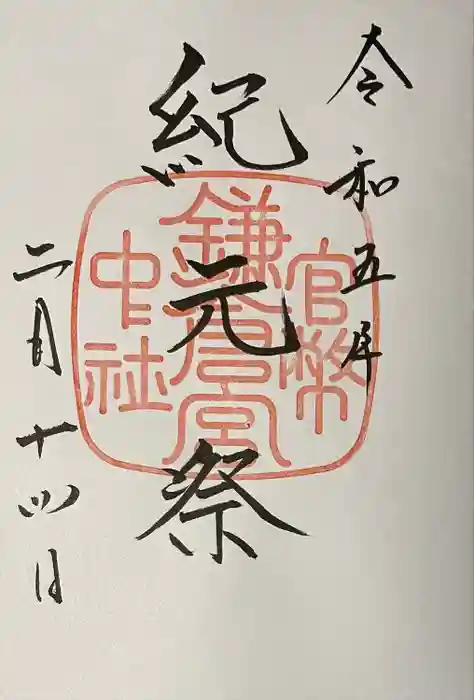 令和五年
紀元祭
二月十四日
官幣
鎌倉宮
中社